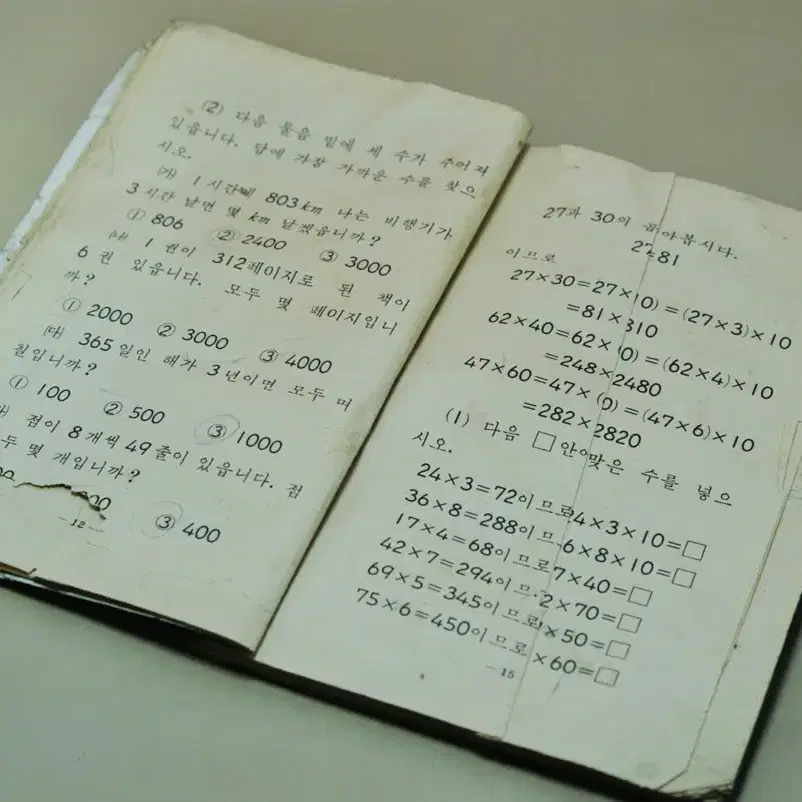 (2) 다음 물음 밑에 세 수가 주어져
있읍니다. 답에 가장 가까운 수를 찾으
시오.
(가) 1시간에 803km 나는 비행기가
3시간 날면 몇 km 날겠읍니까?
① 806 ② 2400 ③ 3000
(나) 1권이 312페이지로 된 책이
6권 있읍니다. 모두 몇 페이지입니
까?
① 2000 ② 3000 ③ 4000
(다) 365일인 해가 3년이면 모두 며
칠입니까?
① 100 ② 500 ③ 1000
점이 8개씩 49줄이 있읍니다. 점
두 몇 개입니까?
③ 400
-12-
27과 30의 곱아봅시다.
2781
이므로
27×30=27×10)=(27×3)×10
=81×310
62×40=62×10)=(62×4)×10
=248×2480
47×60=47×(0)=(47×6)×10
=282×2820
(1) 다음 □안에 맞은 수를 넣으
시오.
24×3=72이므로4×3×10=□
36×8=288이므6×8×10=□
17×4=68이므로7×40=□
42×7=294이므2×70=□
69×5=345이므로×50=□
75×6=450이므로×60=□
-15